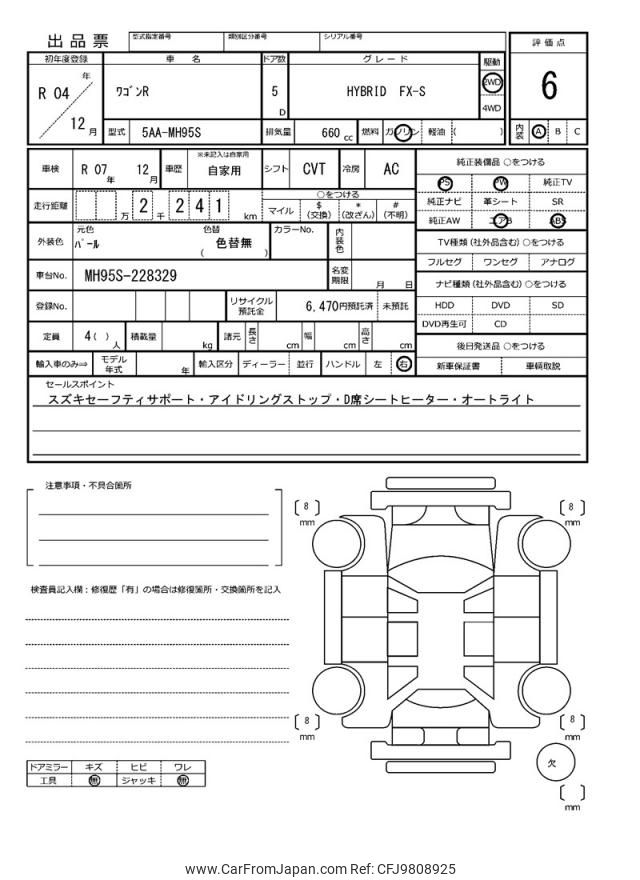 出品票 型式指定番号 類別区分番号 シリアル番号
初年度登録 車名 ドア数 グレード 駆動 評価点
R 04 年 12 月 ワゴンR 5 D HYBRID FX-S 2WD 4WD 6
型式 5AA-MH95S 排気量 660 cc 燃料 ガソリン 軽油 ( ) 内装 A B C
車検 R 07 年 12 月 車歴 ※未記入は自家用 自家用 シフト CVT 冷房 AC
純正装備品 ○をつける
PS PW 純正TV
走行距離 万 2 千 2 4 1 km ○をつける
マイル $(交換) *(改ざん) #(不明)
純正ナビ 革シート SR
純正AW エアB ABS
外装色 元色 パール 色替 色替無 ( ) カラーNo. 内装色
TV種類 (社外品含む) ○をつける
フルセグ ワンセグ アナログ
車台No. MH95S-228329 名変期限 月 日
ナビ種類 (社外品含む) ○をつける
登録No. リサイクル預託金 6,470円預託済 未預託
HDD DVD SD
DVD再生可 CD
定員 4( ) 人 積載量 kg 諸元 長さ cm 幅 cm 高さ cm
後日発送品 ○をつける
輸入車のみ⇒ モデル年式 年 輸入区分 ディーラー 並行 ハンドル 左 右
新車保証書 車輌取説
セールスポイント
スズキセーフティサポート・アイドリングストップ・D席シートヒーター・オートライト
注意事項・不具合箇所
検査員記入欄:修復歴「有」の場合は修復箇所・交換箇所を記入
8 mm
8 mm
8 mm
8 mm
欠
mm
ドアミラー キズ ヒビ ワレ
工具 無 ジャッキ 無
www.CarFromJapan.com Ref: CFJ9808925